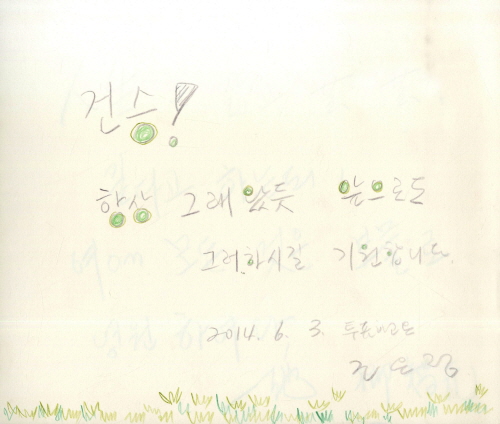 건승!
항상 그래 왔듯 앞으로도
그러하시길 기원합니다.
2014. 6. 3.